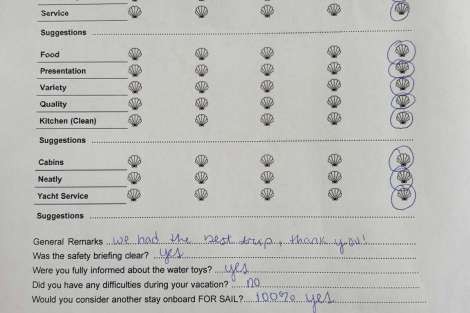 Service
Suggestions
Food
Presentation
Variety
Quality
Kitchen (Clean)
Suggestions
Cabins
Neatly
Yacht Service
Suggestions
General Remarks we had the best trip, thank you!
Was the safety briefing clear? yes
Were you fully informed about the water toys? yes
Did you have any difficulties during your vacation? no
Would you consider another stay onboard FOR SAIL? 100% yes